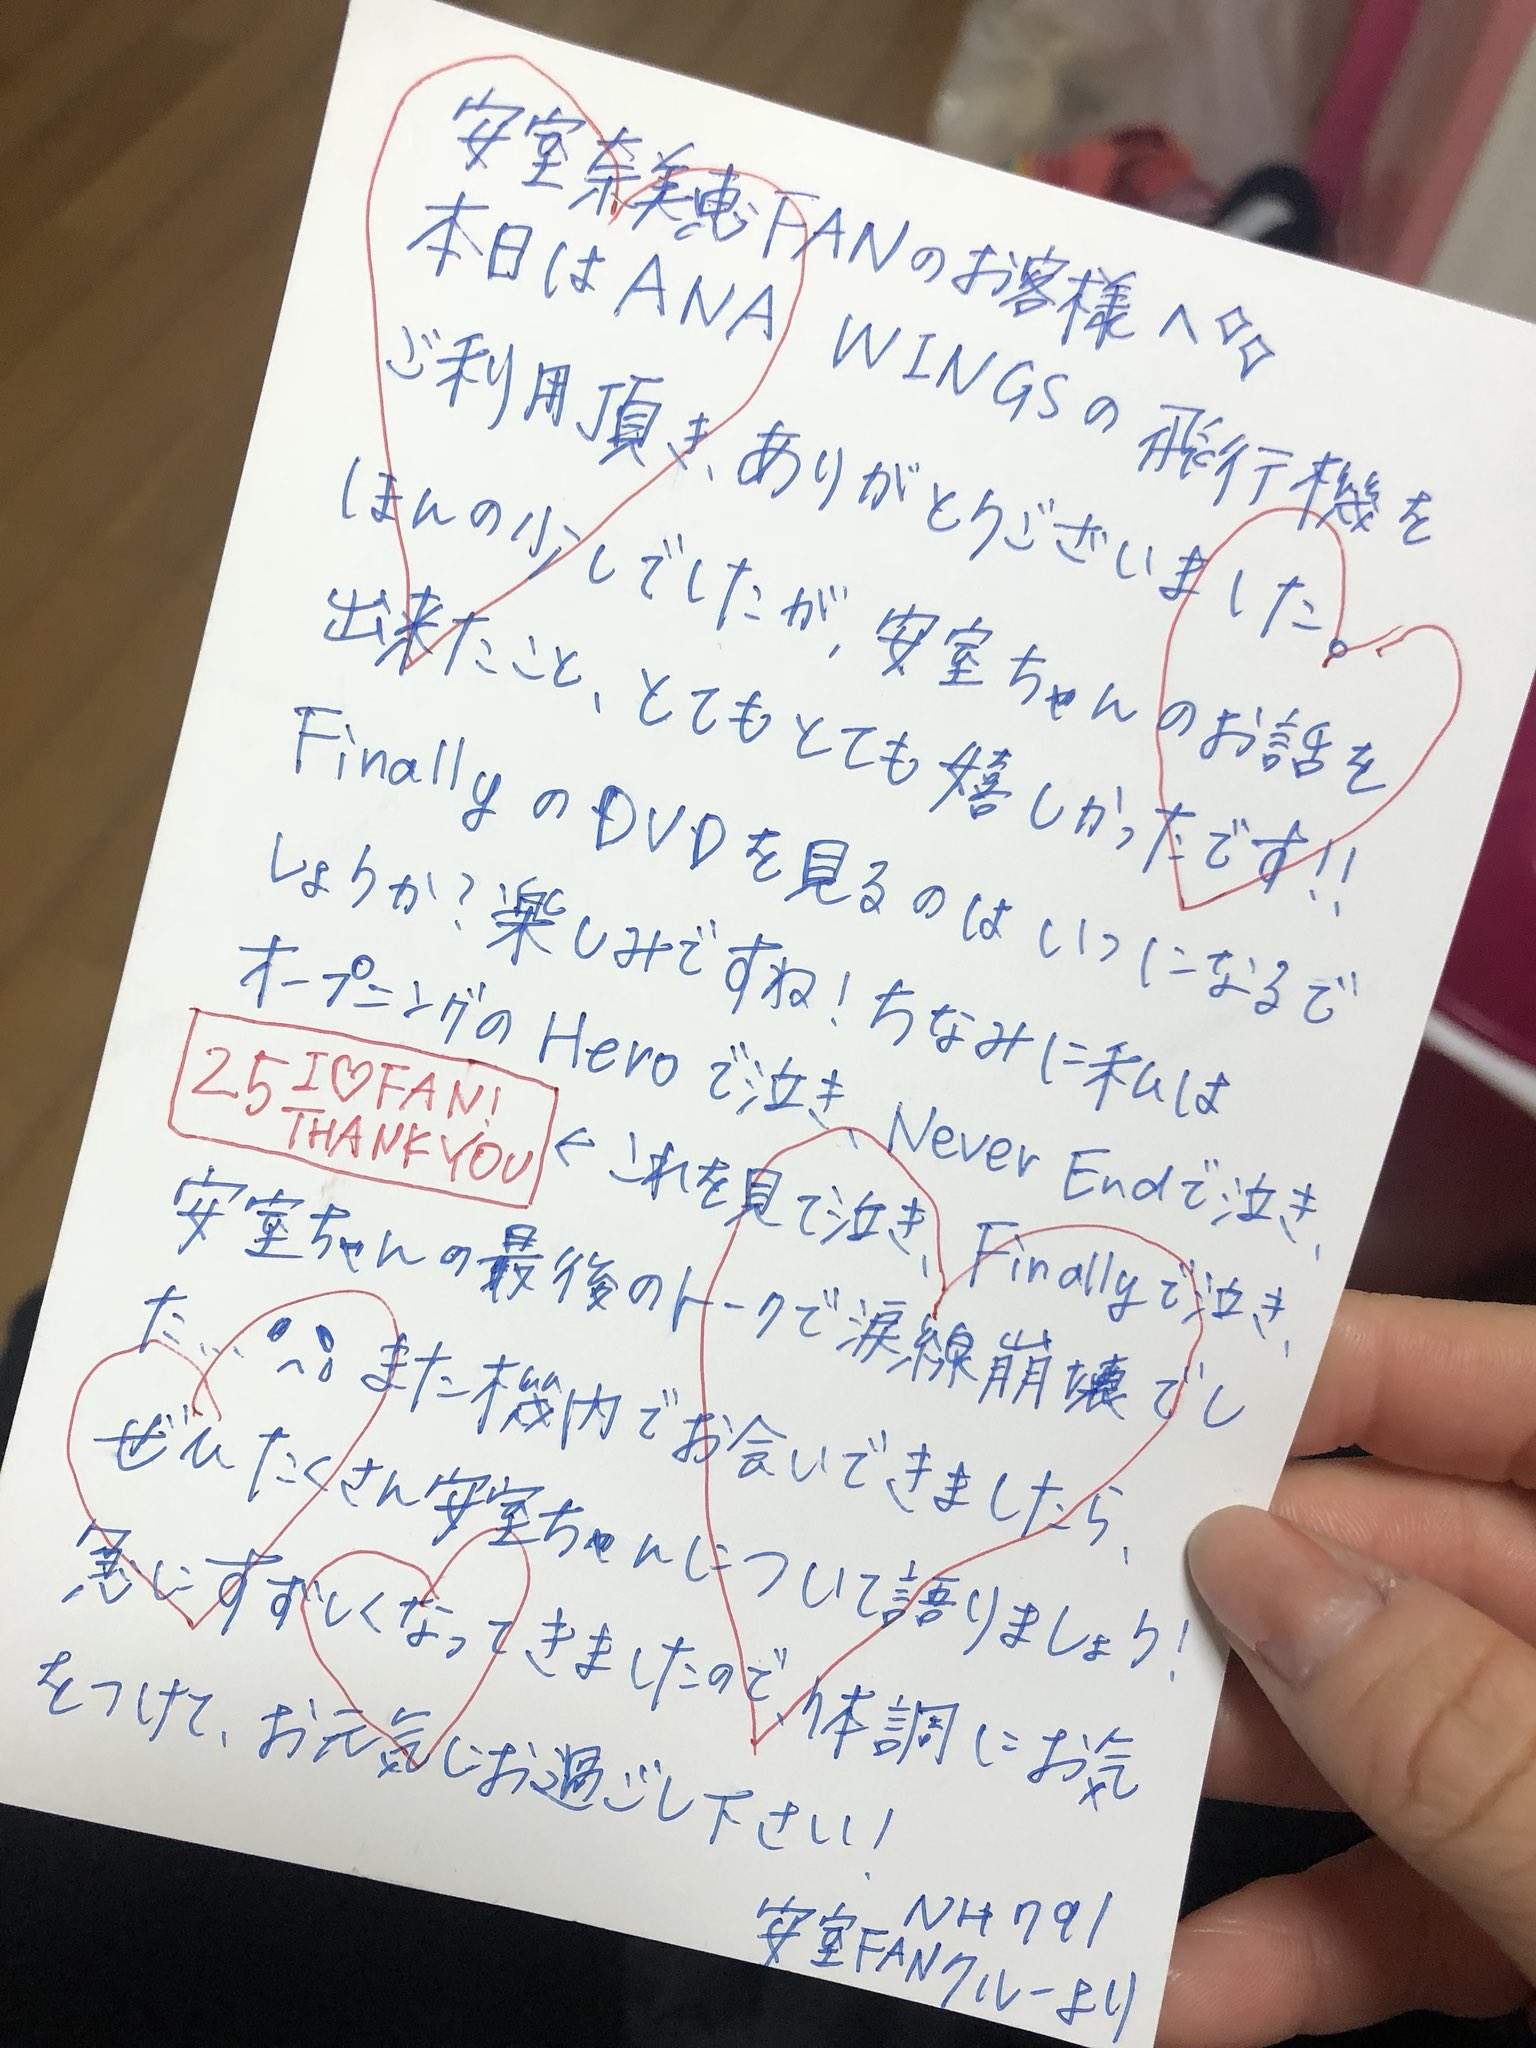 安室奈美恵FANのお客様へ
本日はANA WINGSの飛行機を
ご利用頂き、ありがとうございました。
ほんの少しでしたが、安室ちゃんのお話を
出来たこと、とてもとても嬉しかったです!!
FinallyのDVDを見るのはいつになるで
しょうか?楽しみですね!ちなみに私は
オープニングのHeroで泣き、Never Endで泣き、
25 I♡FAN! THANK YOU ←これを見て泣き、Finallyで泣き、
安室ちゃんの最後のトークで涙線崩壊でし
た… また機内でお会いできましたら、
ぜひたくさん安室ちゃんについて語りましょう!
急にすずしくなってきましたので、体調にお気
をつけて、お元気にお過ごし下さい!
NH791
安室FANクルーより